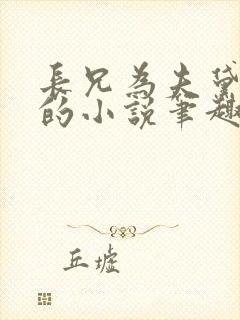 長兄為夫黛
的小說筆趣
丘墟